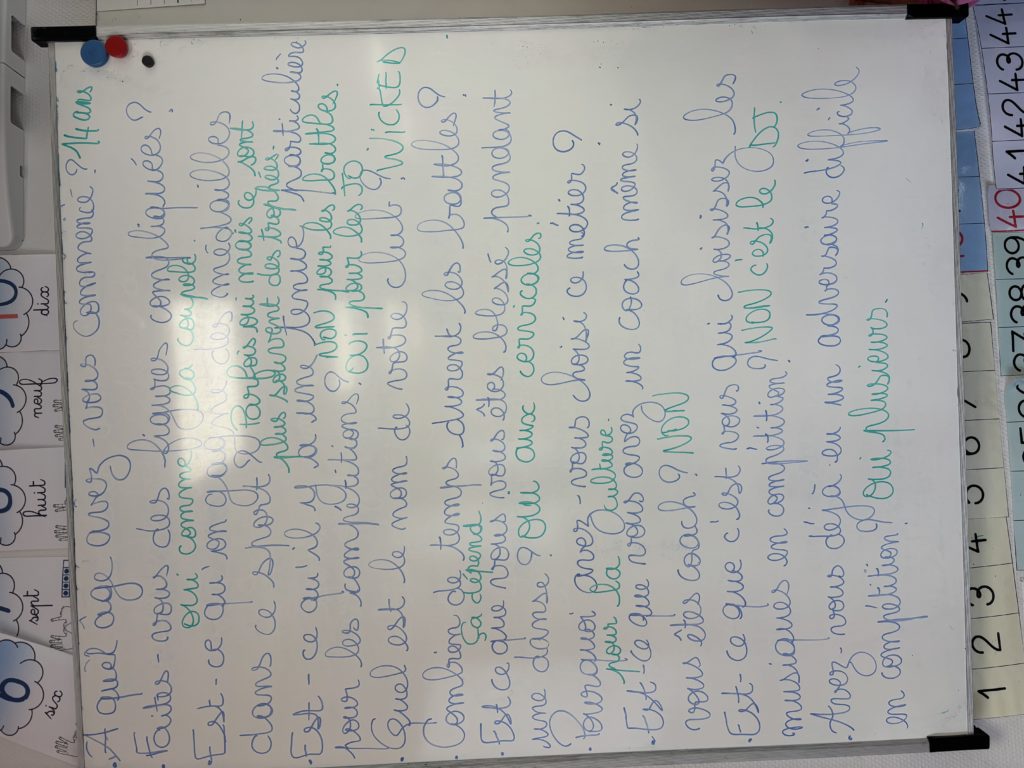 • A quel âge avez-vous commencé ? 14 ans
• Faites-vous des figures compliquées ?
oui comme la coupold.
• Est-ce qu'on gagne des médailles
dans ce sport ? Parfois oui mais ce sont
plus souvent des trophées.
• Est-ce qu'il y a une tenue particulière
pour les compétitions ? Non pour les battles.
OUI pour les JO
• Quel est le nom de votre club ? WICKED
• Combien de temps durent les battles ?
ça dépend
• Est ce que vous vous êtes blessé pendant
une danse ? OUI aux cervicales.
• Pourquoi avez-vous choisi ce métier ?
pour la culture.
• Est-ce que vous avez un coach même si
vous êtes coach ? NON
• Est-ce que c'est vous qui choisissez les
musiques en compétition ? NON c'est le DJ.
• Avez-vous déjà eu un adversaire difficile
en compétition ? OUI plusieurs.
6
six
sept
huit
neuf
10
dix
1 2 3 4 5 6 7
37 38 39 40 41 42 43 44